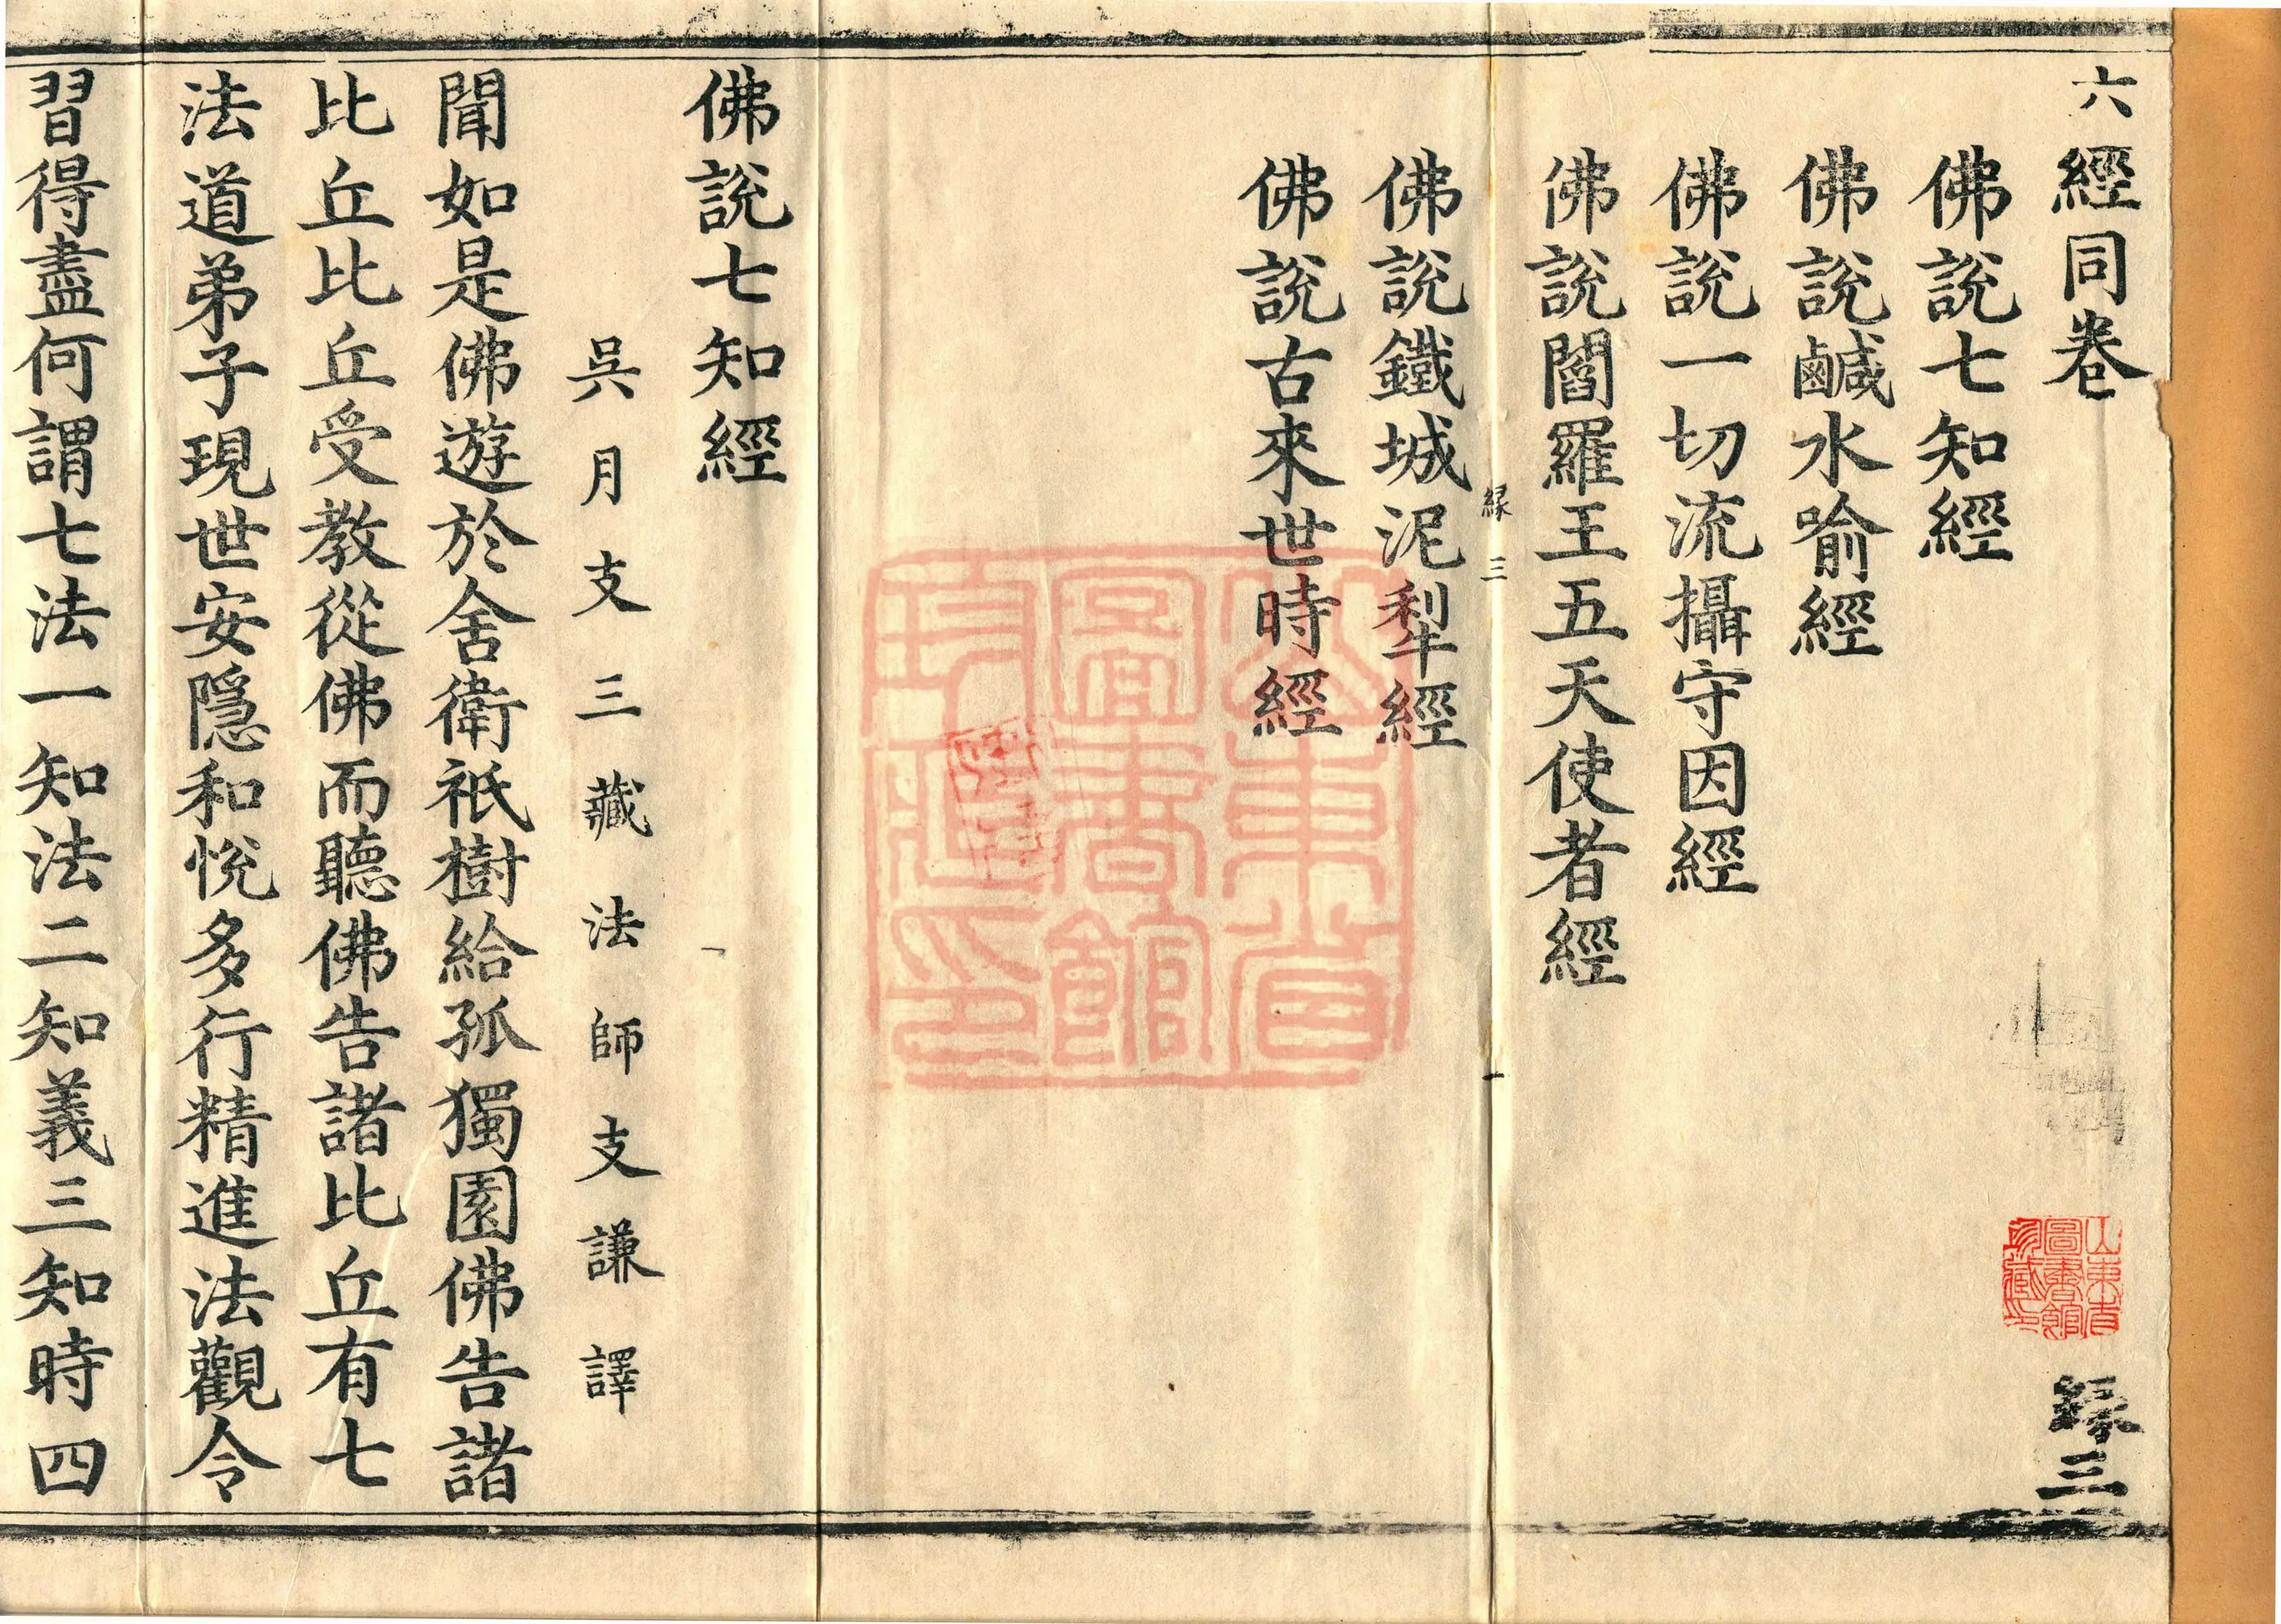 六經同卷
緣三
佛說七知經
佛說鹹水喻經
佛說一切流攝守因經
佛說閻羅王五天使者經
緣三
佛說鐵城泥犁經
佛說古來世時經
佛說七知經
吳月支三藏法師支謙譯
聞如是佛遊於舍衛祇樹給孤獨園佛告諸
比丘比丘受教從佛而聽佛告諸比丘有七
法道弟子現世安隱和悅多行精進法觀令
習得盡何謂七法一知法二知義三知時四
山東省
圖書館
所藏印
山東省
圖書館
珍藏印